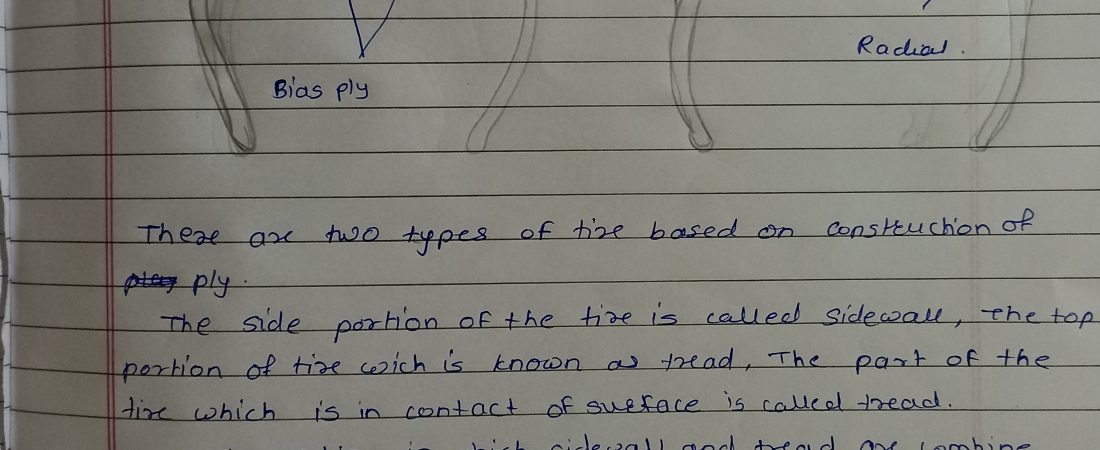 Radial.
Bias ply
There are two types of tire based on construction of
ply.
The side portion of the tire is called sidewall, The top
portion of tire wich is known as tread, The part of the
tire which is in contact of surface is called tread.
sidewall and tread are combine